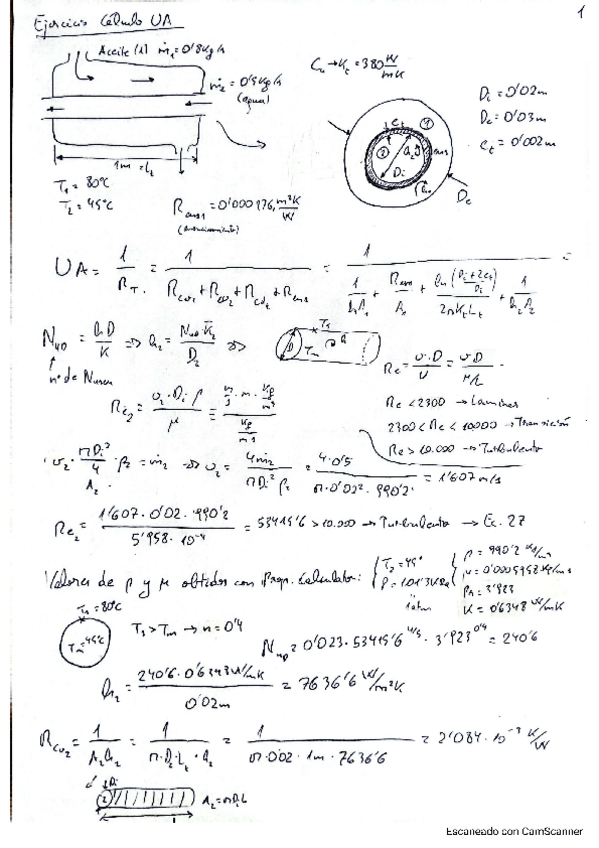 1
Ejercicio Cálculo UA
Aceite (1) ṁ₁=0'8kg/s
ṁ₂=0'5kg/s
(agua)
1m = Lt
T₁ = 80ºC
T₂ = 45ºC
Cu → Kt = 380 W/mK
Di = 0'02m
De = 0'03m
et = 0'002m
Di
De
UA = 1/RT = 1/(Rcv1+Rcv2+Rcdt+Rens) = 1/(1/(h₁A₁) + Rens/A₁ + ln((Di+2et)/Di)/(2πKtLt) + 1/(h₂A₂)) =
Nu0 = hD/K => h₂ = Nu0·K₂/D₂ =>
nº de Nusselt
Re = v·D/ν = v·D/(μ/ρ)
Re₂ = v₂·Di·ρ/μ = (m/s · m · kg/m³)/(kg/m·s)
Re < 2300 → Laminar
2300 < Re < 10000 → Transición
Re > 10.000 → Turbulento
v₂ · πDi²/4 · ρ₂ = ṁ₂ => v₂ = 4ṁ₂/(πDi²ρ₂) = 4·0'5/(π·0'02²·990'2) = 1'607 m/s
A₂
Re₂ = 1'607·0'02·990'2/(5'958·10⁻⁴) = 53415'6 > 10.000 → Turbulento → Ec. 27
Valores de ρ y μ obtenidos con Prop. Calculator: T₂ = 45º
P = 101'3KPa
1atm
ρ = 990'2 kg/m³
μ = 0'0005958 kg/m·s
Pr = 3'923
K = 0'6348 W/mK
Ts = 80ºC
Tm = 45ºC
Ts > Tm → n = 0'4
Nu0 = 0'023·53415'6^4/5 · 3'923^0'4 = 240'6
h₂ = 240'6·0'6348 W/mK/0'02m = 7636'6 W/m²K
Rcv2 = 1/(A₂h₂) = 1/(π·Di·Lt·h₂) = 1/(π·0'02·1m·7636'6) = 2'084·10⁻³ K/W
A₂ = πDiL
Escaneado con CamScanner